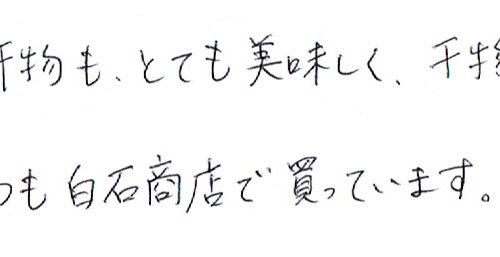 干物も、とても美味しく、干物
つも白石商店で買っています。